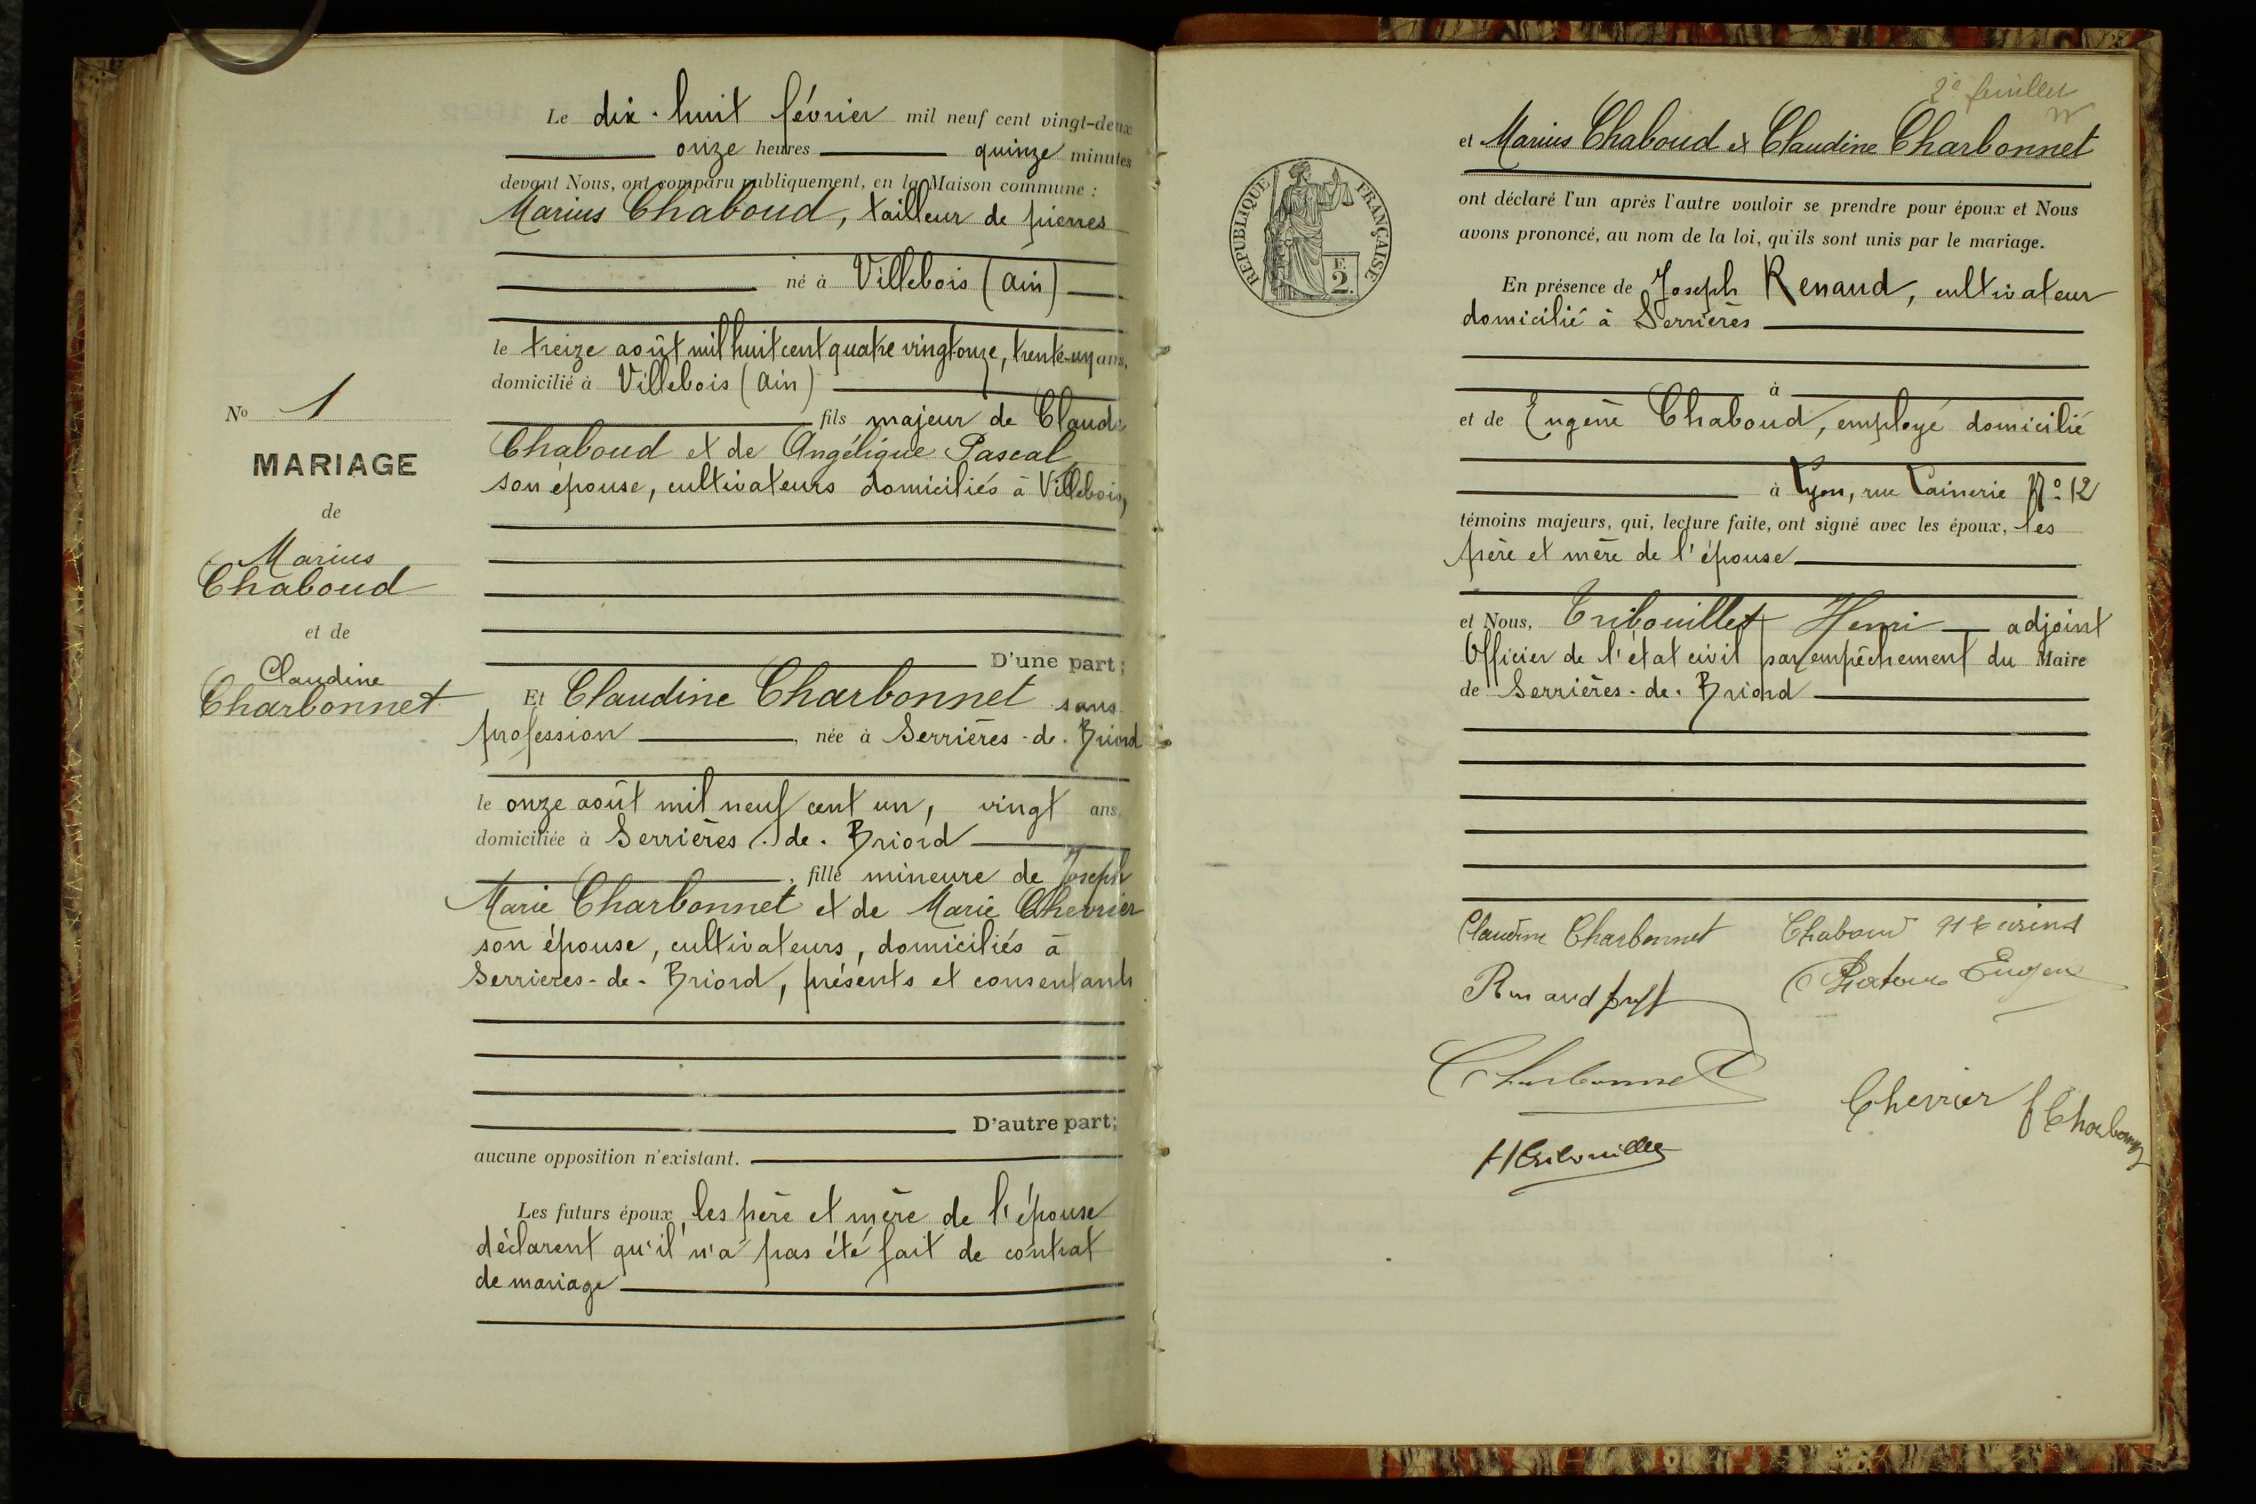 Le dix-huit février mil neuf cent vingt-deux
onze heures quinze minutes
devant Nous, ont comparu publiquement, en la Maison commune :
Marius Chaboud, tailleur de pierres
né à Villebois (Ain)
le treize août mil huit cent quatre vingt onze, trente-un ans,
domicilié à Villebois (Ain)
fils majeur de Claude
Chaboud et de Angélique Pascal
son épouse, cultivateurs domiciliés à Villebois,
D'une part;
Et Claudine Charbonnet sans
profession, née à Serrières-de-Briord
le onze août mil neuf cent un, vingt ans,
domiciliée à Serrières-de-Briord
, fille mineure de Joseph
Marie Charbonnet et de Marie Chevrier
son épouse, cultivateurs, domiciliés à
Serrières-de-Briord, présents et consentants
D'autre part;
aucune opposition n'existant.
Les futurs époux, les père et mère de l'épouse
déclarent qu'il n'a pas été fait de contrat
de mariage
No 1
MARIAGE
de
Marius
Chaboud
et de
Claudine
Charbonnet
2e feuillet
et Marius Chaboud et Claudine Charbonnet
ont déclaré l'un après l'autre vouloir se prendre pour époux et Nous
avons prononcé, au nom de la loi, qu'ils sont unis par le mariage.
RÉPUBLIQUE FRANÇAISE
F.
2.
En présence de Joseph Renaud, cultivateur
domicilié à Serrières
à
et de Eugène Chaboud, employé domicilié
à Lyon, rue Lainerie No 12
témoins majeurs, qui, lecture faite, ont signé avec les époux, les
père et mère de l'épouse
et Nous, Tribouillet Henri adjoint
Officier de l'état civil par empêchement du Maire
de Serrières-de-Briord
Claudine Charbonnet Chaboud Marius
Renaud Eugène
Charbonnet
Chevrier f Charbonnet
HTribouillet